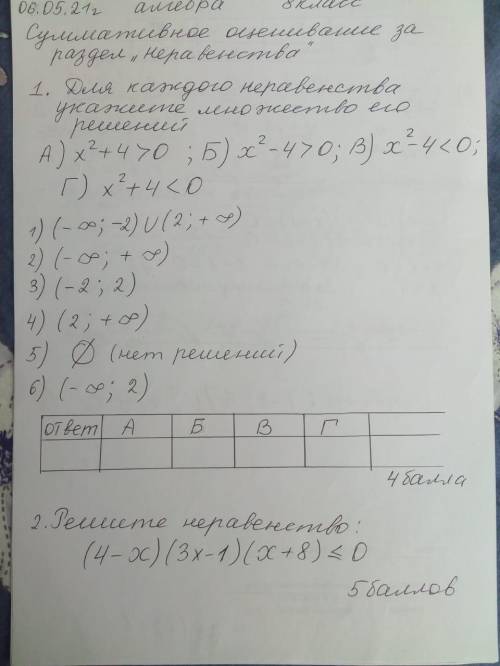 06.05.21г алгебра 8класс
Суммативное оценивание за
раздел „неравенства“
1. Для каждого неравенства
укажите множество его
решений
А) x²+4>0 ; Б) x²-4>0; В) x²-4<0;
Г) x²+4<0
1) (-∞; -2)∪(2; +∞)
2) (-∞; +∞)
3) (-2; 2)
4) (2; +∞)
5) ∅ (нет решений)
6) (-∞; 2)
ответ А Б В Г
4балла
2. Решите неравенство:
(4-x)(3x-1)(x+8)≤0
5баллов